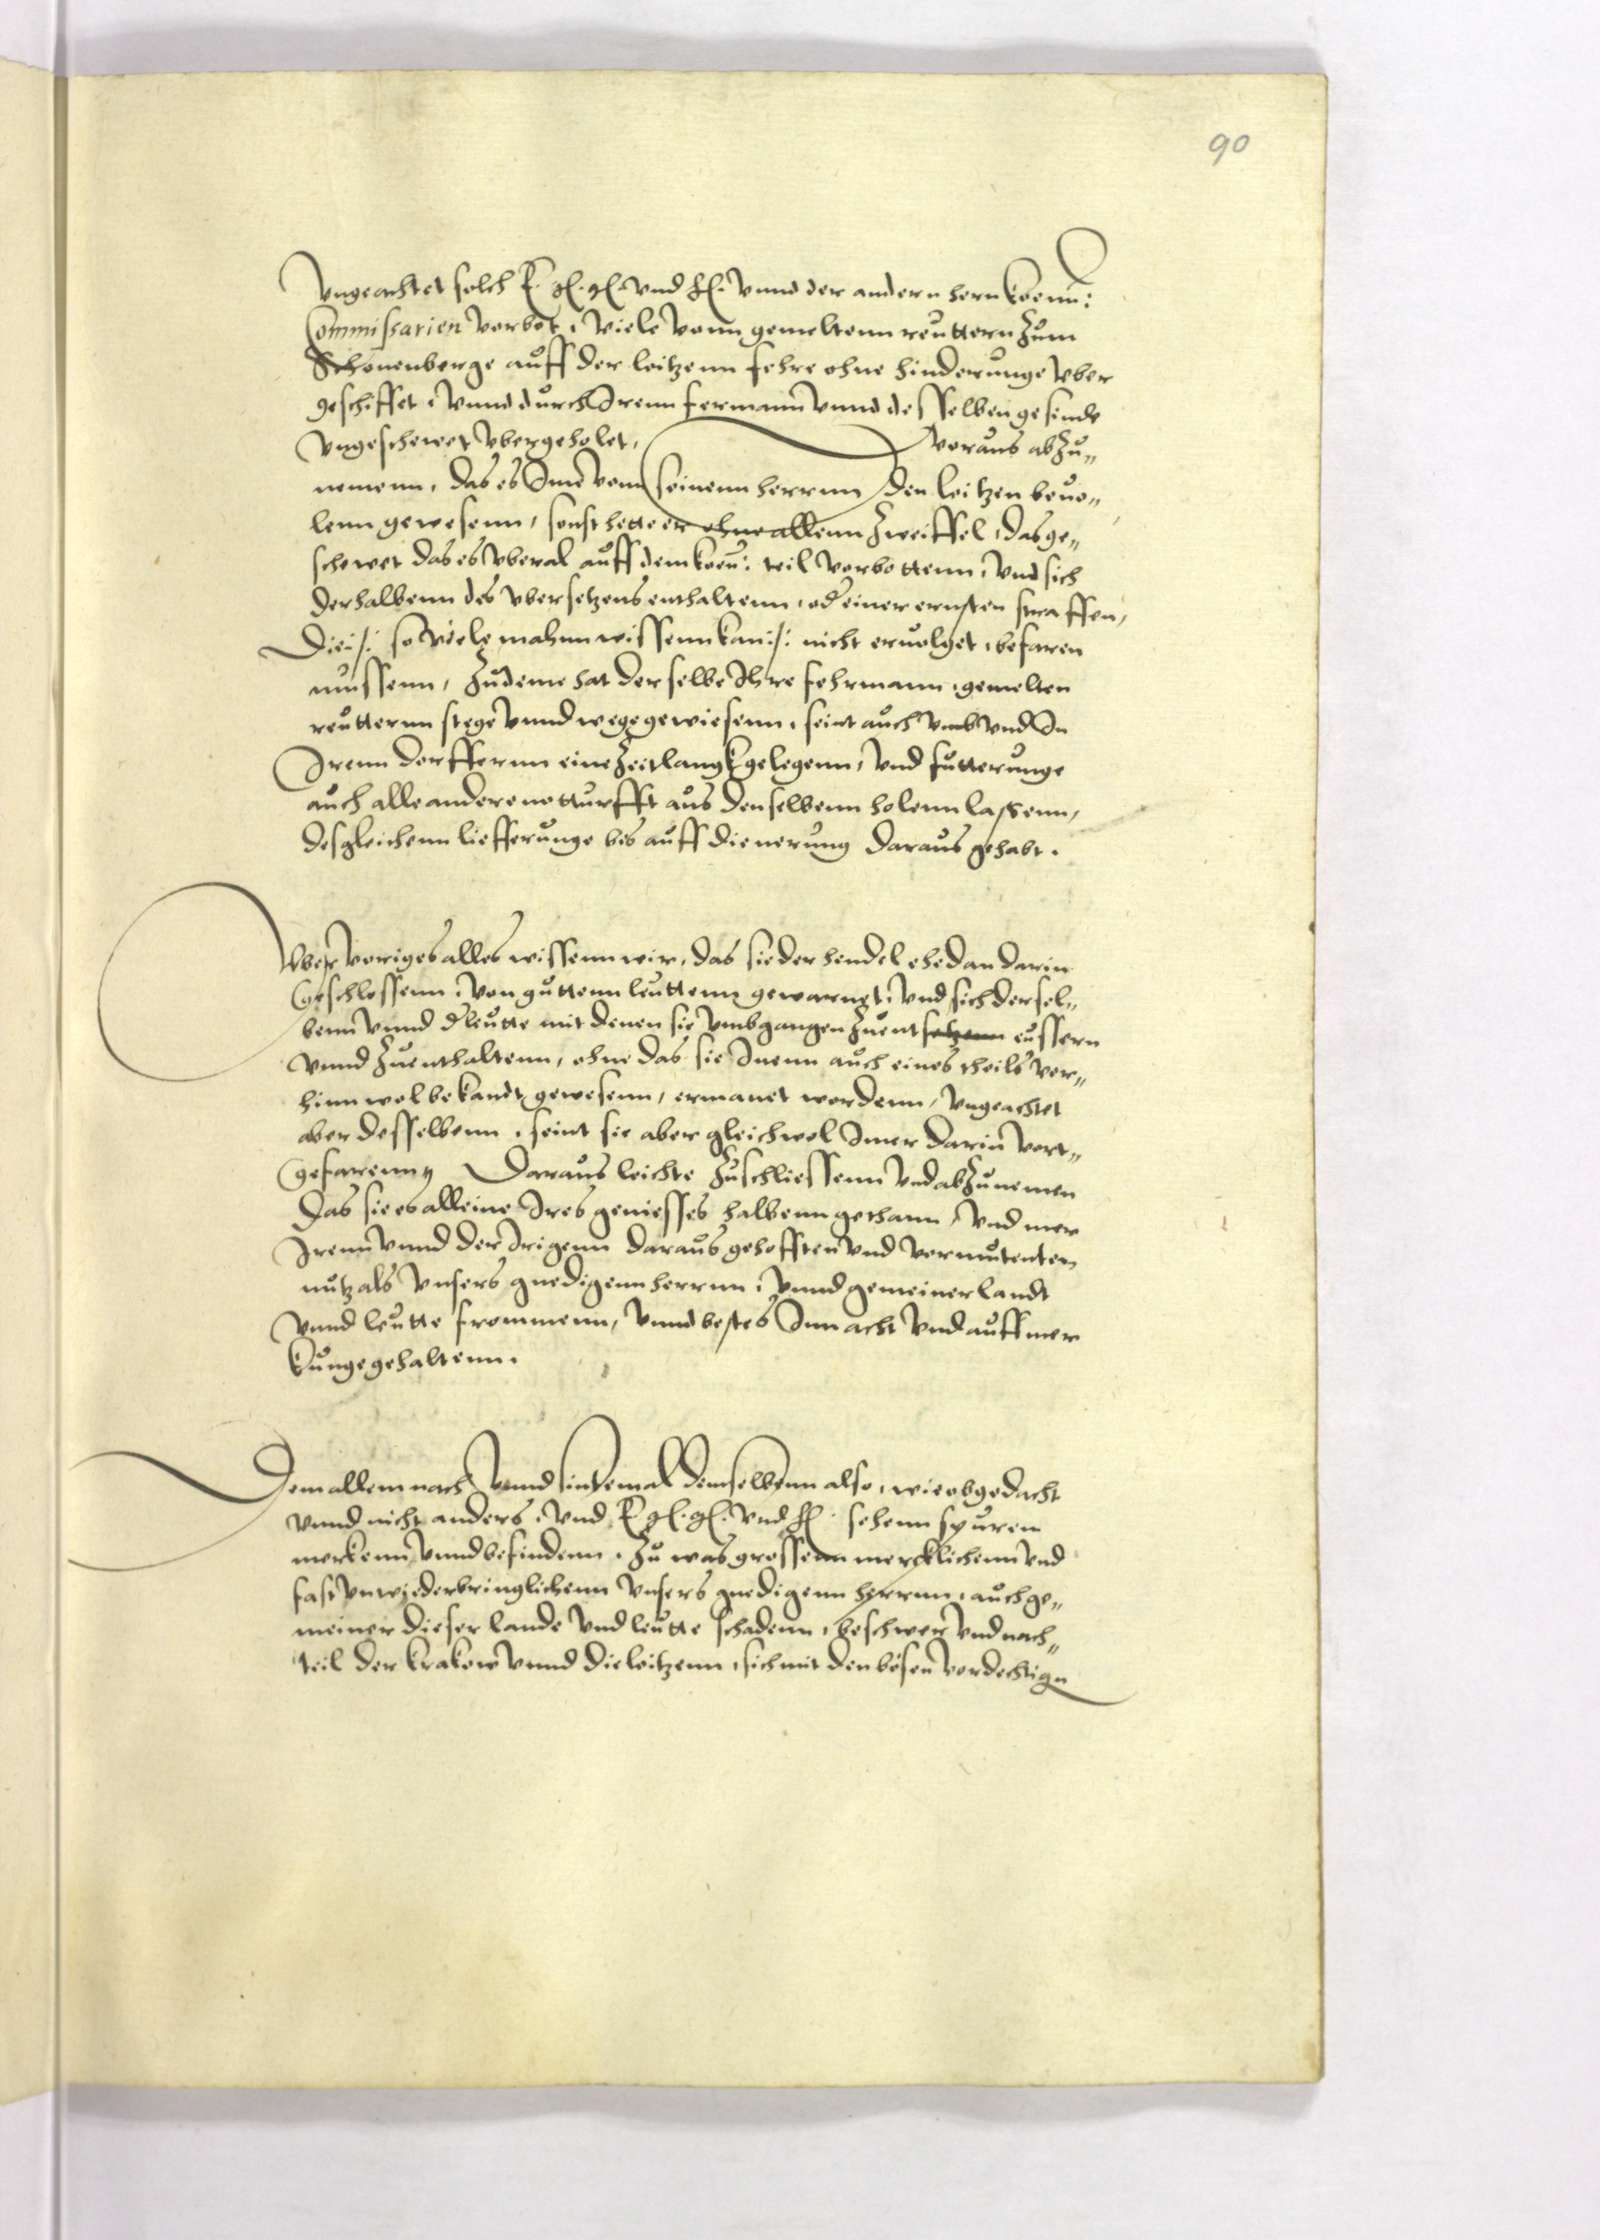 90
Vngeachtet solch E. gl. gl. vnd fl. vnnd der andern hern koenn:
Commissarien verbot, viele vonn gemeltenn reuttern zum
Schonenberge auff der leitzenn fehre ohne hinderunge vber
geschiffet, vnnd durch Irenn fermann vnnd desselben gesinde
vngeschewet vbergeholet, Woraus abzu„
nemenn, das es Ime vonn seinenn herrnn den leitzen beuo„
lenn gewesenn, sonst hette er ohne allenn zweiffel, das ge„
schewet das es vberal auff dem koen: teil verbottenn, vnd sich
derhalbenn des vbersetzens enthaltenn, od einer ernsten straffen,
Die :/: so viele mahnn wissenn kan :/: nicht eruolget, befaren
mussenn, Zudeme hat derselbe Ihre fehrmann, gemelten
reutternn stege vnnd wege gewiesenn, seint auch vmb vnd In
Irenn dorffernn eine Zeitlangk gelegenn, vnd futterunge
auch alle andere notturfft aus denselbenn holenn lassenn,
desgleichenn liefferunge bis auff die nerung daraus gehabt.
Vber voriges alles wissenn wir, das sie der hendel ehe dan darin
geschlossenn, von guttenn leuttenn gewarnet, vnd sich dersel„
benn vnnd d leutte mit denen sie vmbgangen zuentsetzenn eussern
vnnd zuenthaltenn, ohne das sie Inenn auch eines theils vor„
hinn wol bekandt gewesenn, ermanet wordenn, vngeachtet
aber desselbenn, seint sie aber gleichwol Imer darin vort„
gefarenn, Daraus leichte zuschliessenn vnd abzunemen
Das sie es alleine Ires geniesses halbenn gethann, vnd mer
Irenn vnnd der Irigenn daraus gehofften vnd vermutenten
nutz als vnsers gnedigenn herrnn, vnnd gemeiner landt
vnnd leutte frommenn, vnnd bestes Inn acht vnd auffmer
kunge gehaltenn.
Dem allem nach vnnd sintemal demselbenn also, wie obgedacht
vnnd nicht anders, vnd E. gl. gl. vnd fl. sehenn spuren
merkenn vnnd befindenn, zu was grossenn mercklichenn vnd
fast vnwiederbringlichenn vnsers gnedigenn herrnn, auch ge„
meiner dieser lande vnd leutte schadenn, beschwer vnd nach„
teil der krakow vnnd die leitzenn, sich mit den bösen verdechtign